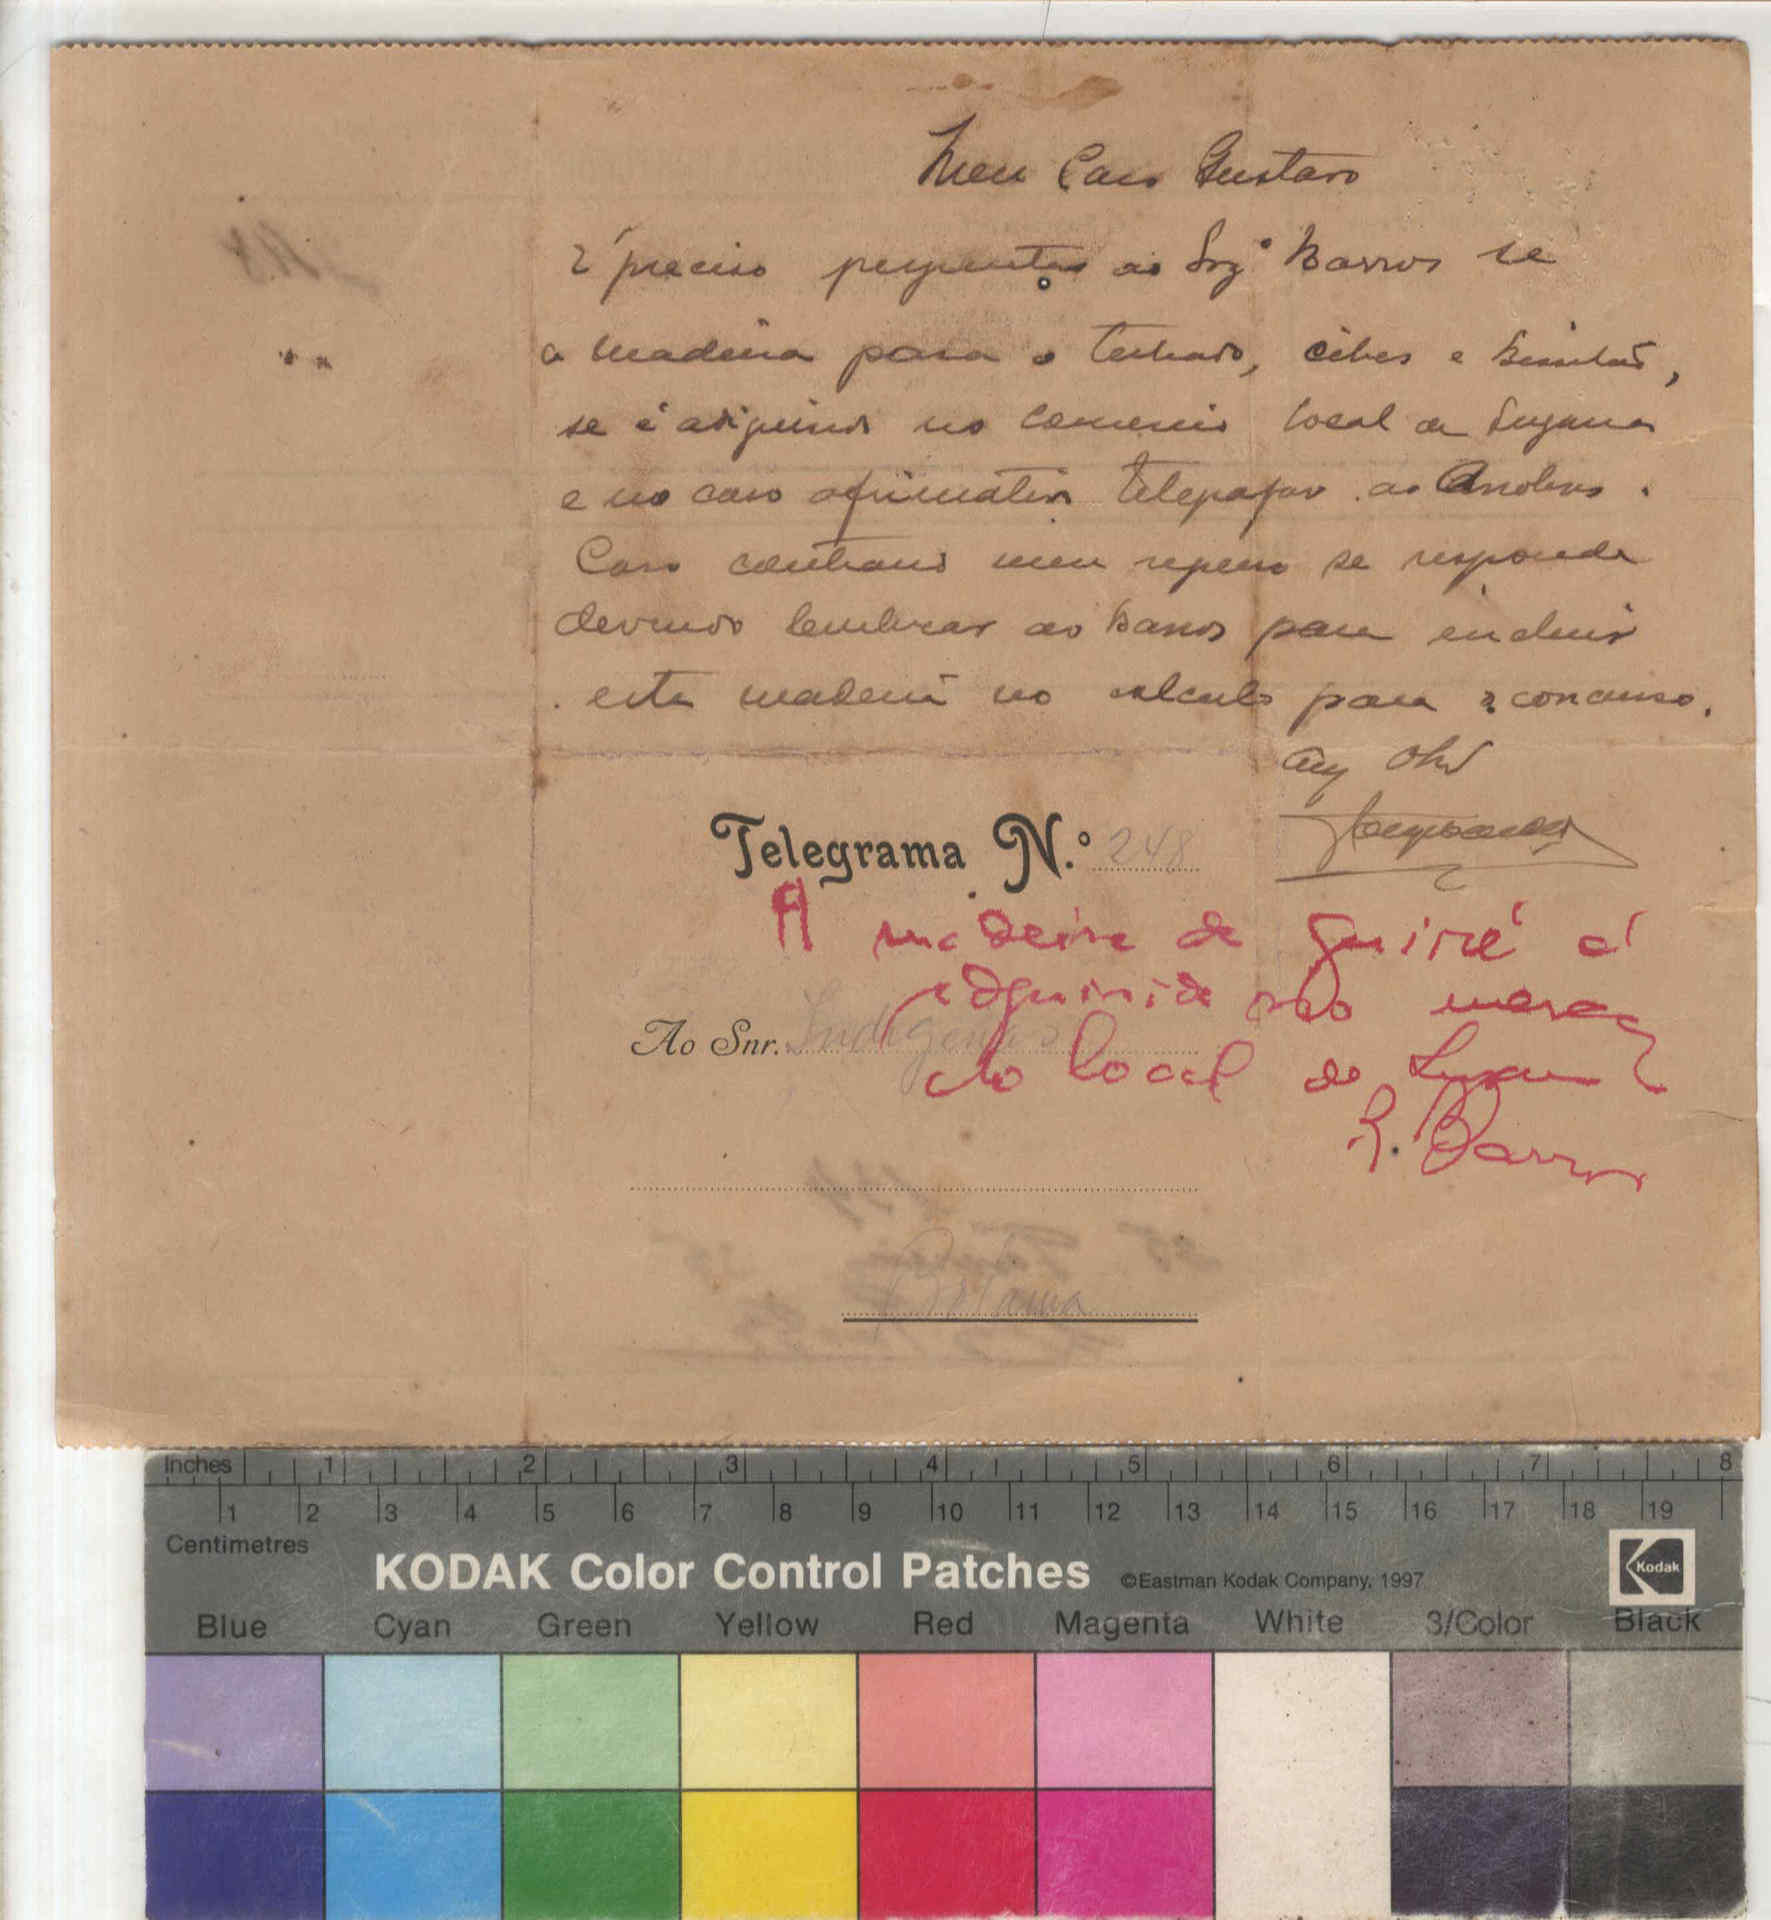 Meu Caro Gustavo
É preciso perguntar ao Srgº Barros se
a madeira para o telhado, cibes e
se é adquirida no comercio local de Suzana
e no caso afirmativo telegrafar ao Anobero.
Caso contrario nem sequer se responda
devendo lembrar ao Barros para incluir
esta madeira no calculo para o concurso.
Telegrama N.º 248
A madeira de quiré é
adquirida no merca
do local de Suzana
Ao Snr. Indigenas
R. Barros
Bolama
Inches 1 2 3 4 5 6 7 8
1 2 3 4 5 6 7 8 9 10 11 12 13 14 15 16 17 18 19
Centimetres
KODAK Color Control Patches ©Eastman Kodak Company, 1997 Kodak
Blue Cyan Green Yellow Red Magenta White 3/Color Black